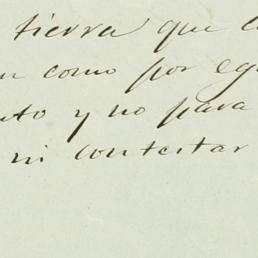 tierra que
como por
y no para
ni contestar